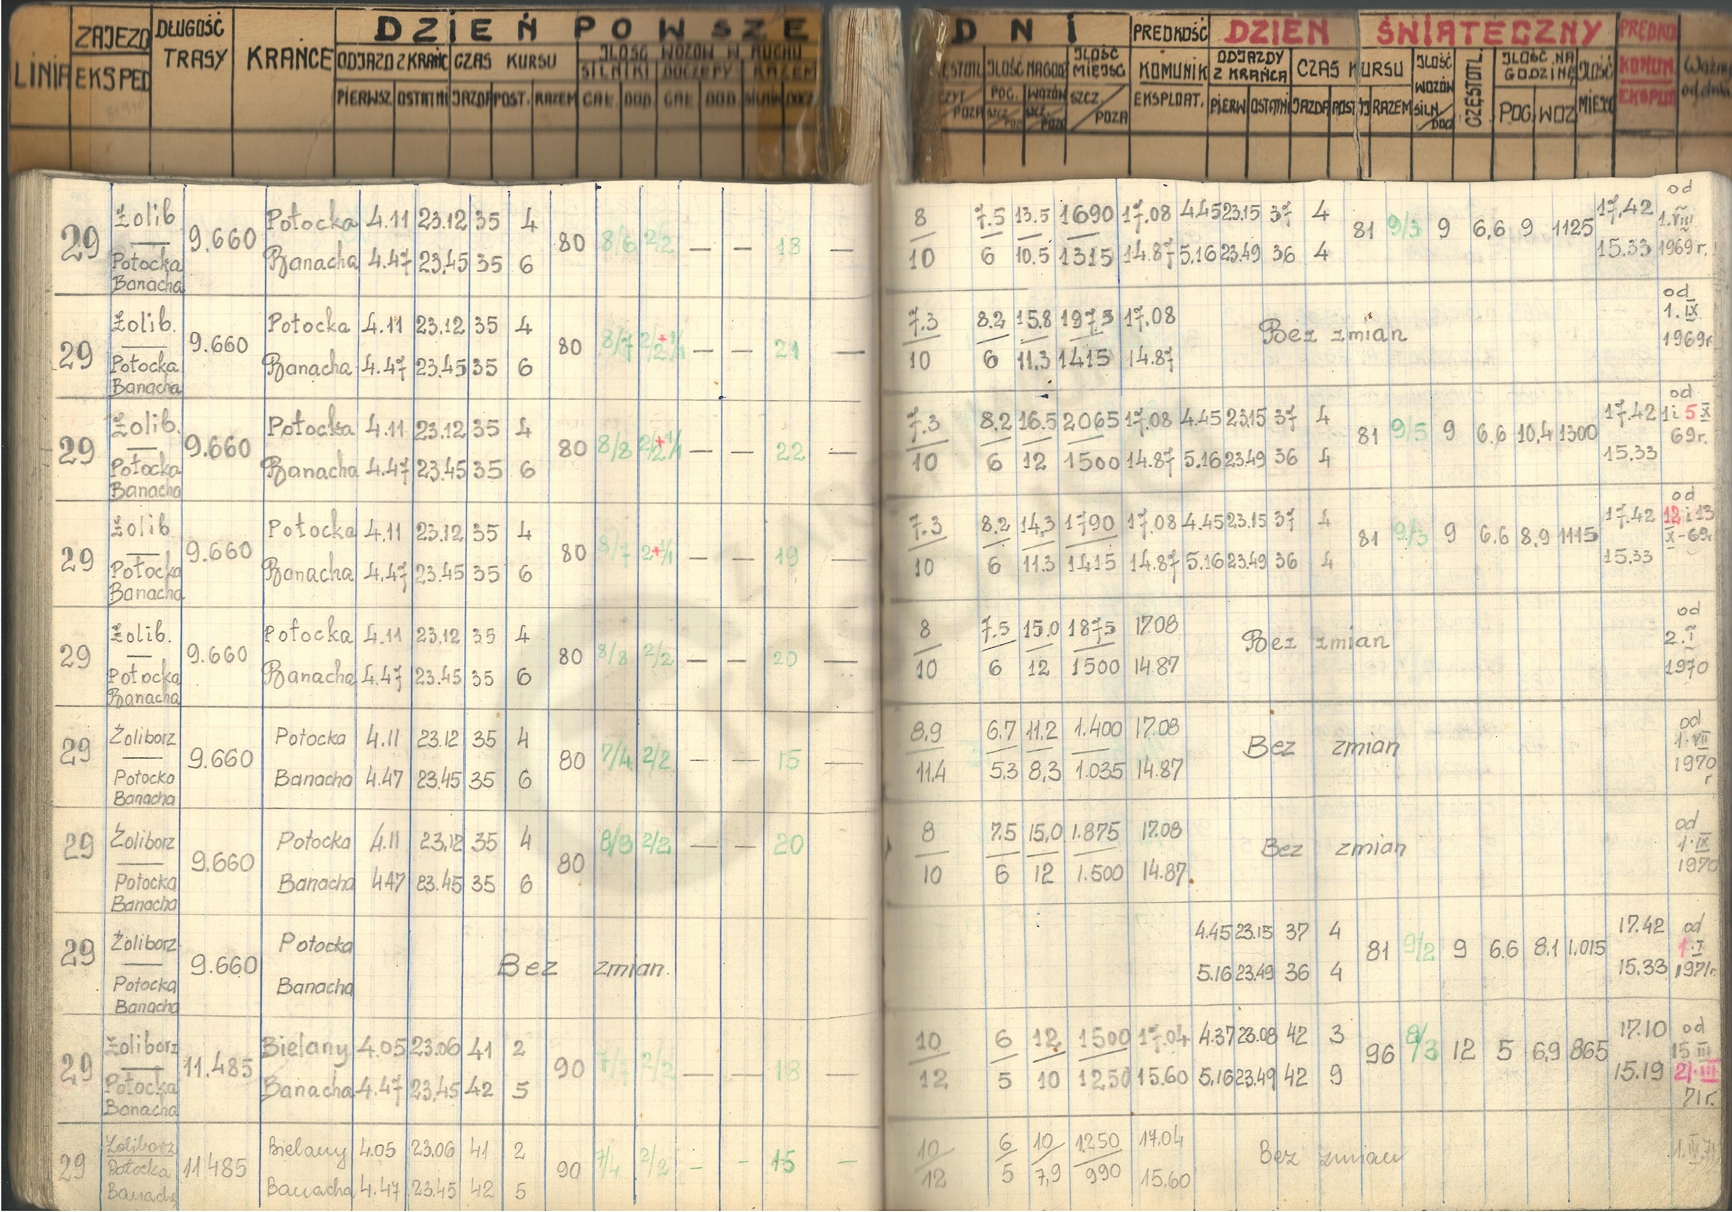 ZAJEZD DŁUGOŚĆ DZIEŃ POWSZE DNI PRĘDKOŚĆ DZIEŃ ŚWIĄTECZNY PRĘDKO
LINIA EKSPED TRASY KRAŃCE ODJAZD Z KRAŃC CZAS KURSU ILOŚĆ WOZÓW W RUCHU ILOŚĆ NAGODZ ILOŚĆ MIEJSC KOMUNIK ODJAZDY Z KRAŃCA CZAS KURSU ILOŚĆ WOZÓW CZĘSTOTL. ILOŚĆ NA GODZINĘ ILOŚĆ KOMUN. Ważny od dnia
SILNIKI DOCZEPY RAZEM
PIERWSZ OSTATNI JAZDA POST. RAZEM CAŁ. DOD. CAŁ. DOD. SILNIK DOCZ. POC. WOZÓW SZCZ./POZA EKSPLOAT. PIERW OSTATNI JAZDA POST RAZEM SILN/DOCZ POC. WOZ MIEJSC EKSPLO
29 Żolib 9.660 Potocka 4.11 23.12 35 4 80 8/6 2/2 — — 18 — 8 7.5 13.5 1690 17.08 4.45 23.15 37 4 81 9/3 9 6,6 9 1125 17.42 od 1.VIII
Potocka Banacha Banacha 4.47 23.45 35 6 10 6 10.5 1315 14.87 5.16 23.49 36 4 15.33 1969 r.
29 Żolib. 9.660 Potocka 4.11 23.12 35 4 80 8/7 2/2+1/1 — — 21 — 7.3 8.2 15.8 1975 17.08 Bez zmian od 1.IX
Potocka Banacha Banacha 4.47 23.45 35 6 10 6 11.3 1415 14.87 1969r.
29 Żolib. 9.660 Potocka 4.11 23.12 35 4 80 8/8 2/2+1/1 — — 22 — 7.3 8.2 16.5 2065 17.08 4.45 23.15 37 4 81 9/5 9 6.6 10,4 1300 17.42 od 1 i 5 X
Potocka Banacha Banacha 4.47 23.45 35 6 10 6 12 1500 14.87 5.16 23.49 36 4 15.33 69r.
29 Żolib 9.660 Potocka 4.11 23.12 35 4 80 8/7 2+1/1 — — 19 — 7.3 8.2 14,3 1790 17.08 4.45 23.15 37 4 81 9/3 9 6.6 8,9 1115 17.42 od 12 i 13
Potocka Banacha Banacha 4.47 23.45 35 6 10 6 11.3 1415 14.87 5.16 23.49 36 4 15.33 X-69r
29 Żolib. 9.660 Potocka 4.11 23.12 35 4 80 8/8 2/2 — — 20 — 8 7.5 15.0 1875 17.08 Bez zmian od 2.I
Potocka Banacha Banacha 4.47 23.45 35 6 10 6 12 1500 14.87 1970
29 Żoliborz 9.660 Potocka 4.11 23.12 35 4 80 7/4 2/2 — — 15 — 8,9 6.7 11,2 1.400 17.08 Bez zmian od 1.VII
Potocka Banacha Banacha 4.47 23.45 35 6 11.4 5.3 8,3 1.035 14.87 1970 r
29 Żoliborz 9.660 Potocka 4.11 23.12 35 4 80 8/8 2/2 — — 20 8 7.5 15,0 1.875 17.08 Bez zmian od 1.IX
Potocka Banacha Banacha 4.47 23.45 35 6 10 6 12 1.500 14.87. 1970
29 Żoliborz 9.660 Potocka Bez zmian. 4.45 23.15 37 4 81 9/2 9 6.6 8.1 1.015 17.42 od 1.I
Potocka Banacha Banacha 5.16 23.49 36 4 15.33 1971r.
29 Żoliborz 11.485 Bielany 4.05 23.06 41 2 90 7/7 2/2 — — 18 — 10 6 12 1500 17.04 4.37 23.08 42 3 96 8/3 12 5 6,9 865 17.10 od 15 III
Potocka Banacha Banacha 4.47 23.45 42 5 12 5 10 1250 15.60 5.16 23.49 42 9 15.19 21.III 71 r.
29 Żoliborz 11485 Bielany 4.05 23.06 41 2 90 7/4 2/2 — — 15 — 10 6 10 1250 17.04 Bez zmian 1.IV.71
Potocka Banacha Banacha 4.47 23.45 42 5 12 5 7,9 990 15.60